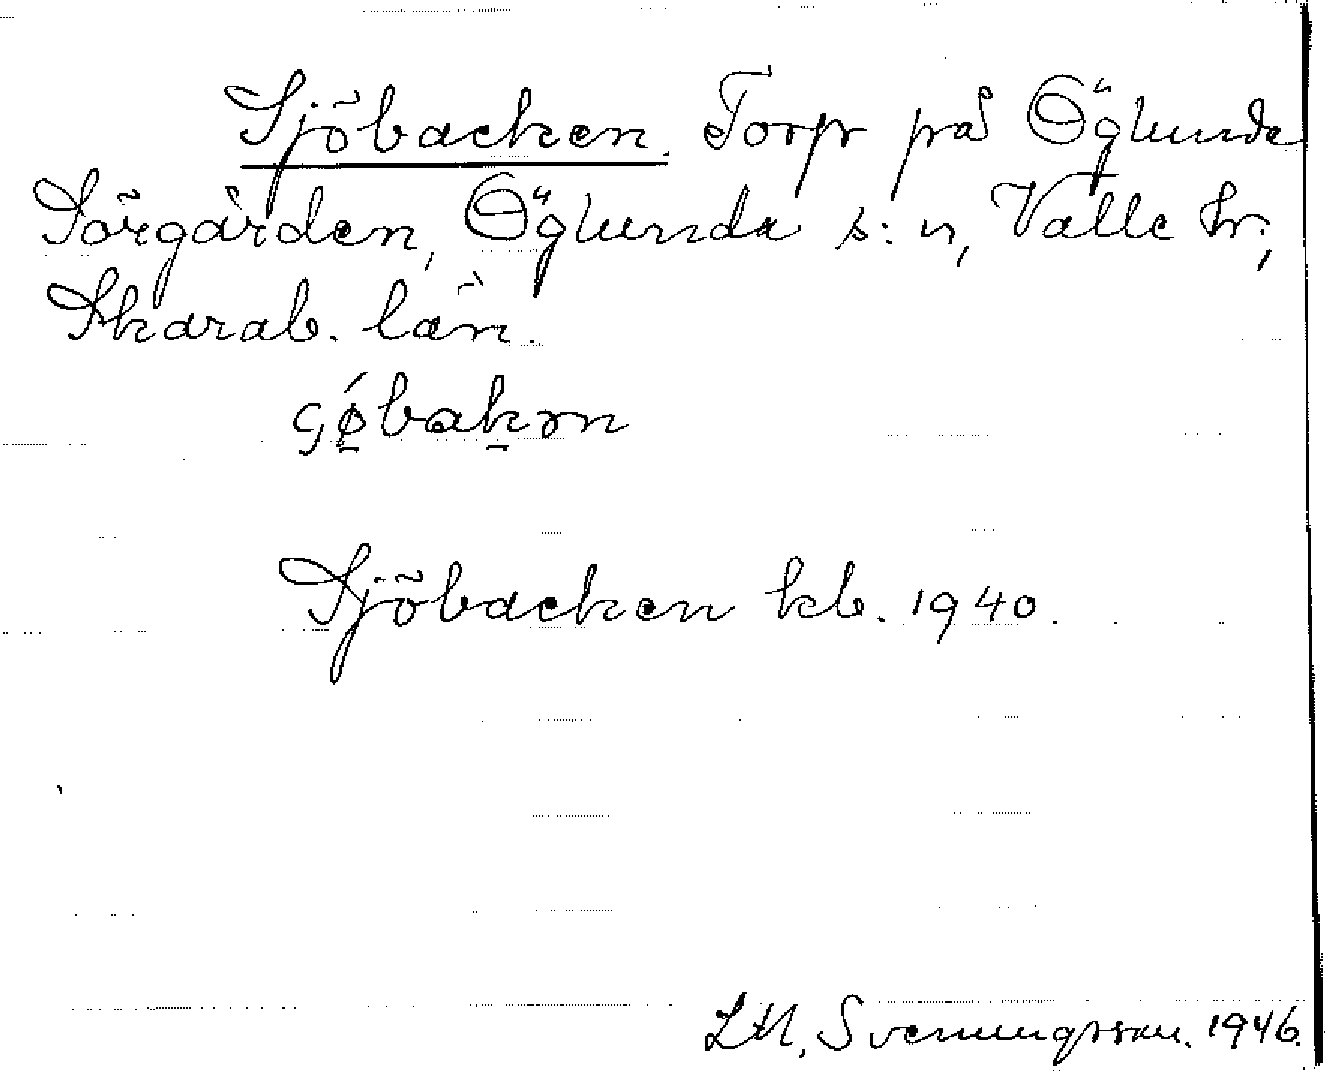 Sjöbacken. Torp på Öglunda
Sörgården, Öglunda s:n, Valle hr,
Skarab. län.
Sjöbacken kb. 1940.
Svenningsson. 1946.